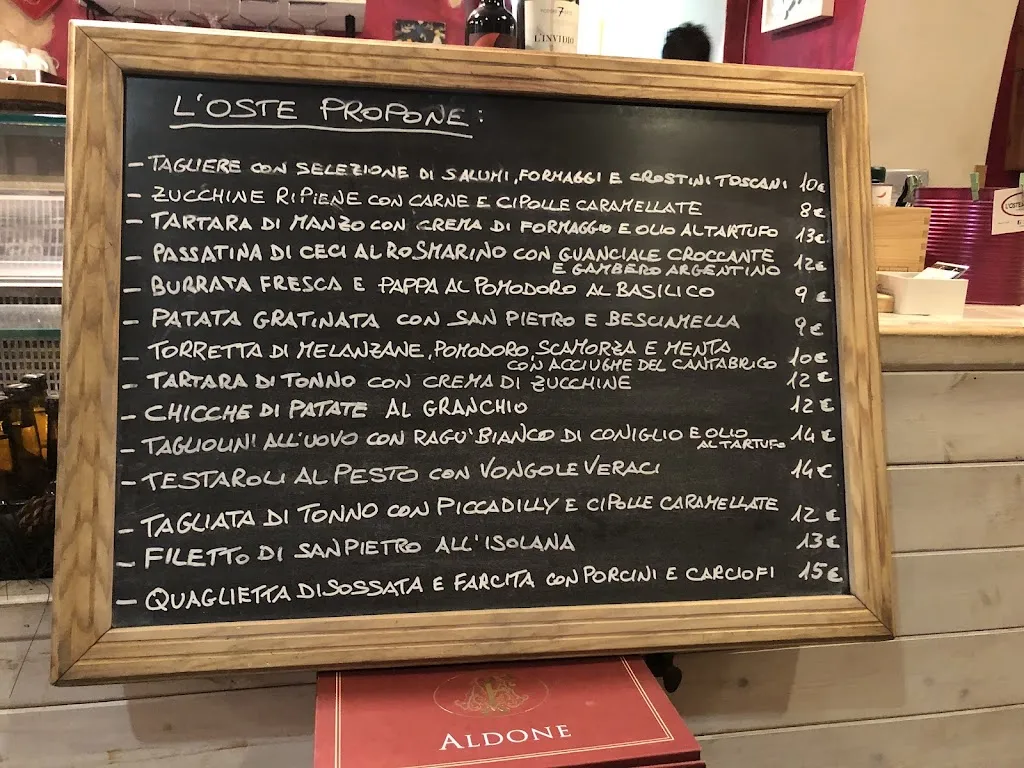 7
L'INVIDIO
L'OSTE PROPONE:
- TAGLIERE CON SELEZIONE DI SALUMI, FORMAGGI E CROSTINI TOSCANI 10€
- ZUCCHINE RIPIENE CON CARNE E CIPOLLE CARAMELLATE 8€
- TARTARA DI MANZO CON CREMA DI FORMAGGIO E OLIO AL TARTUFO 13€
- PASSATINA DI CECI AL ROSMARINO CON GUANCIALE CROCCANTE 12€
E GAMBERO ARGENTINO
- BURRATA FRESCA E PAPPA AL POMODORO AL BASILICO 9€
- PATATA GRATINATA CON SAN PIETRO E BESCIAMELLA 9€
- TORRETTA DI MELANZANE, POMODORO, SCAMORZA E MENTA 10€
CON ACCIUGHE DEL CANTABRICO
- TARTARA DI TONNO CON CREMA DI ZUCCHINE 12€
- CHICCHE DI PATATE AL GRANCHIO 12€
- TAGLIOLINI ALL'UOVO CON RAGU' BIANCO DI CONIGLIO E OLIO 14€
AL TARTUFO
- TESTAROLI AL PESTO CON VONGOLE VERACI 14€
- TAGLIATA DI TONNO CON PICCADILLY E CIPOLLE CARAMELLATE 12€
- FILETTO DI SAN PIETRO ALL'ISOLANA 13€
- QUAGLIETTA DISOSSATA E FARCITA CON PORCINI E CARCIOFI 15€
ALDONE